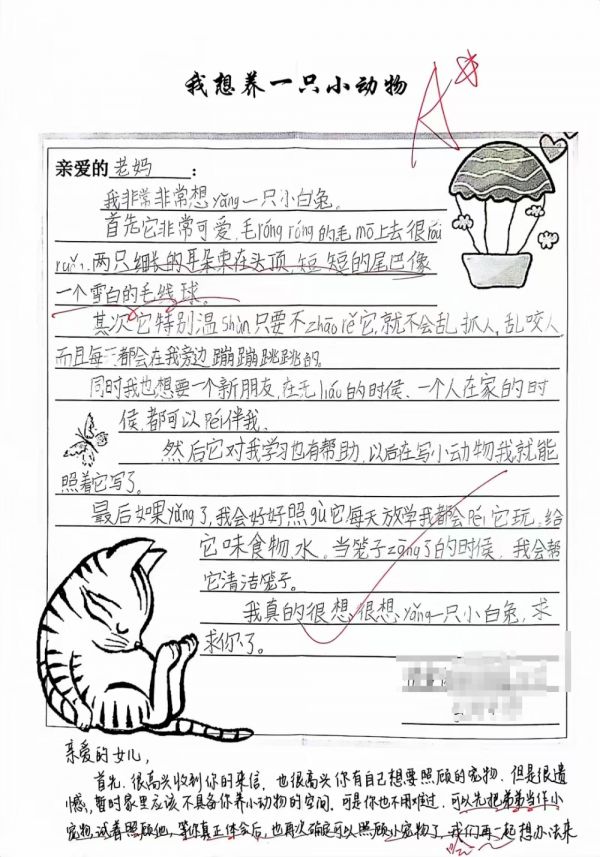 我想养一只小动物
A+
亲爱的老妈：
我非常非常想yǎng一只小白兔。
首先它非常可爱,毛róng róng的毛mō上去很
ruǎn,两只细长的耳朵束在头顶,短短的尾巴像
一个雪白的毛线球。
其次它特别温shùn只要不zhāo rě它,就不会乱抓人,乱咬人
而且每天都会在我旁边蹦蹦跳跳的。
同时我也想要一个新朋友,在无liáo的时侯、一个人在家的时
侯,都可以péi伴我。
然后它对我学习也有帮助,以后在写小动物我就能
照着它写了。
最后如果yǎng了,我会好好照gù它每天放学我都会péi它玩,给
它味食物,水。当笼子zāng了的时侯,我会帮
它清洁笼子。
我真的很想,很想yǎng一只小白兔,求
求你了。
亲爱的女儿,
首先,很高兴收到你的来信,也很高兴你有自己想要照顾的宠物,但是很遗
憾,暂时家里应该不具备你养小动物的空间,可是你也不用难过,可以先把弟弟当作小
宠物,试着照顾他,等你真正体会后,也再次确定可以照顾小宠物了,我们再一起想办法来